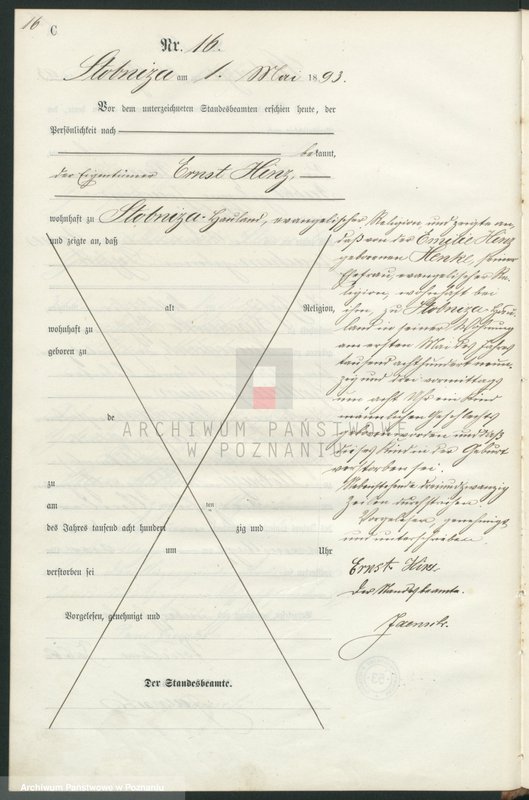 16
C
Nr. 16.
Stobniza am 1. Mai 1893.
Vor dem unterzeichneten Standesbeamten erschien heute, der
Persönlichkeit nach
bekannt,
der Eigentümer Ernst Hinz,
wohnhaft zu Stobniza-Hauland, evangelischer Religion und zeigte an,
und zeigte an, daß
alt Religion,
wohnhaft zu
geboren zu
de
zu
am ten
des Jahres tausend acht hundert zig und
um Uhr
verstorben sei
Vorgelesen, genehmigt und
Der Standesbeamte.
daß von der Emilie Hinz
geborenen Henke, seiner
Ehefrau, evangelischer Re-
ligion, wohnhaft bei
ihm, zu Stobniza-Hau-
land in seiner Wohnung
am ersten Mai des Jahres
tausend achthundert neun-
zig und drei vormittags
um acht Uhr ein Kind
männlichen Geschlechts
geboren worden und daß
dieses Kind in der Geburt
verstorben sei.
Nebenstehende dreiundzwanzig
Zeilen durchstrichen.
Vorgelesen, genehmigt
und unterschrieben.
Ernst Hinz
Der Standesbeamte.
Jaensch.
ARCHIWUM PAŃSTWOWE
W POZNANIU
Archiwum Państwowe w Poznaniu